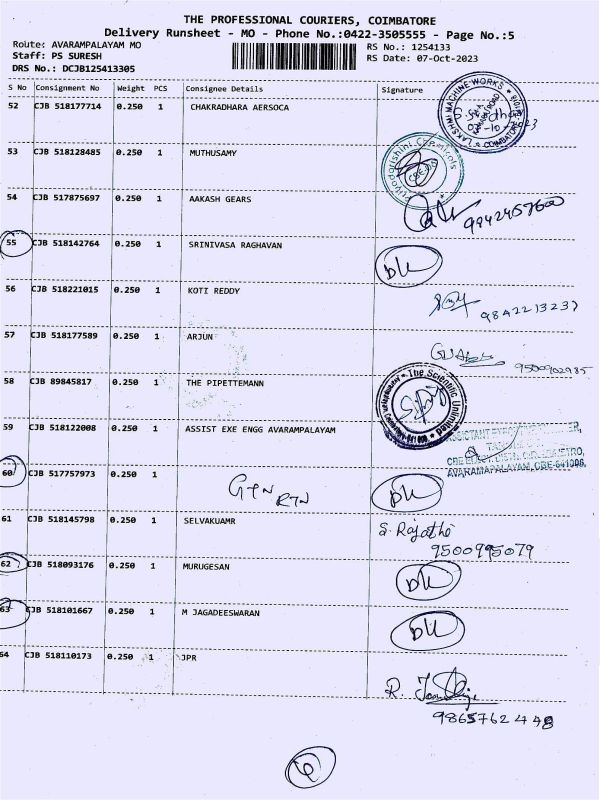 THE PROFESSIONAL COURIERS, COIMBATORE
Delivery Runsheet - MO - Phone No.:0422-3505555 - Page No.:5
Route: AVARAMPALAYAM MO RS No.: 1254133
Staff: PS SURESH RS Date: 07-Oct-2023
DRS No.: DCJB125413305
S No Consignment No Weight PCS Consignee Details Signature
52 CJB 518177714 0.250 1 CHAKRADHARA AERSOCA
LAKSHMI MACHINE WORKS
COIMBATORE
53 CJB 518128485 0.250 1 MUTHUSAMY
54 CJB 517875697 0.250 1 AAKASH GEARS
9942457600
55 CJB 518142764 0.250 1 SRINIVASA RAGHAVAN
DL
56 CJB 518221015 0.250 1 KOTI REDDY
9842213237
57 CJB 518177589 0.250 1 ARJUN
58 CJB 89845817 0.250 1 THE PIPETTEMANN
The Scientific Unlimited
59 CJB 518122008 0.250 1 ASSIST EXE ENGG AVARAMPALAYAM
AVARAMPALAYAM, CBE-641006.
60 CJB 517757973 0.250 1
RTN
DL
61 CJB 518145798 0.250 1 SELVAKUAMR
S. Rajathi
9500995079
62 CJB 518093176 0.250 1 MURUGESAN
DL
63 CJB 518101667 0.250 1 M JAGADEESWARAN
DL
64 CJB 518110173 0.250 1 JPR
9865762448